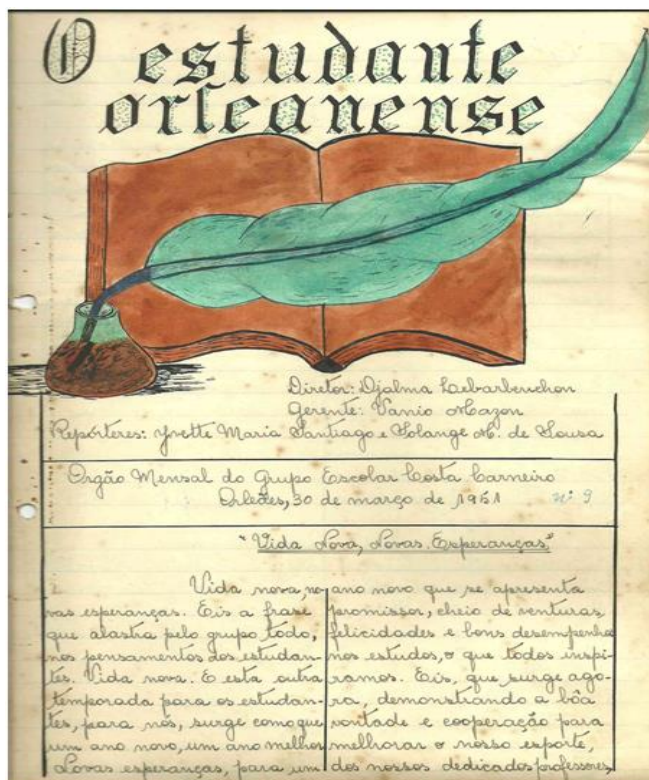 O estudante
orleanense
Diretor: Djalma Lebarbenchon
Gerente: Vanio Mazon
Repórteres: Yvette Maria Santiago e Solange M. de Sousa
Orgão Mensal do Grupo Escolar Costa Carneiro
Orleães, 30 de março de 1951 nº 9
"Vida Nova, Novas Esperanças"
Vida nova, no
vas esperanças. Eis a frase
que alastra pelo grupo todo,
nos pensamentos dos estudan-
tes. Vida nova. E esta outra
temporada para os estudan-
tes, para nós, surge como que
um ano novo, um ano melhor
Novas esperanças, para um
ano novo que se apresenta
promissor, cheio de venturas
felicidades e bons desempenhos
nos estudos, o que todos inspi-
ramos. Eis, que surge ago-
ra, demonstrando a bôa
vontade e cooperação para
melhorar o nosso esporte,
dos nossos dedicados professores,